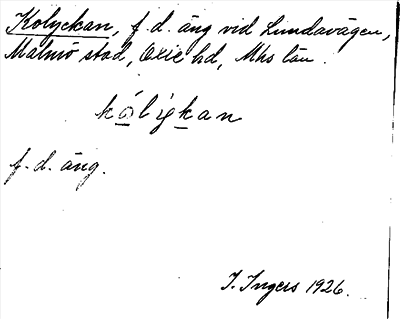 Kolyckan, f. d. äng vid Lundavägen,
Malmö stad, Oxie hd, Mhs län.
kòlịykan
f. d. äng.
I. Ingers 1926.